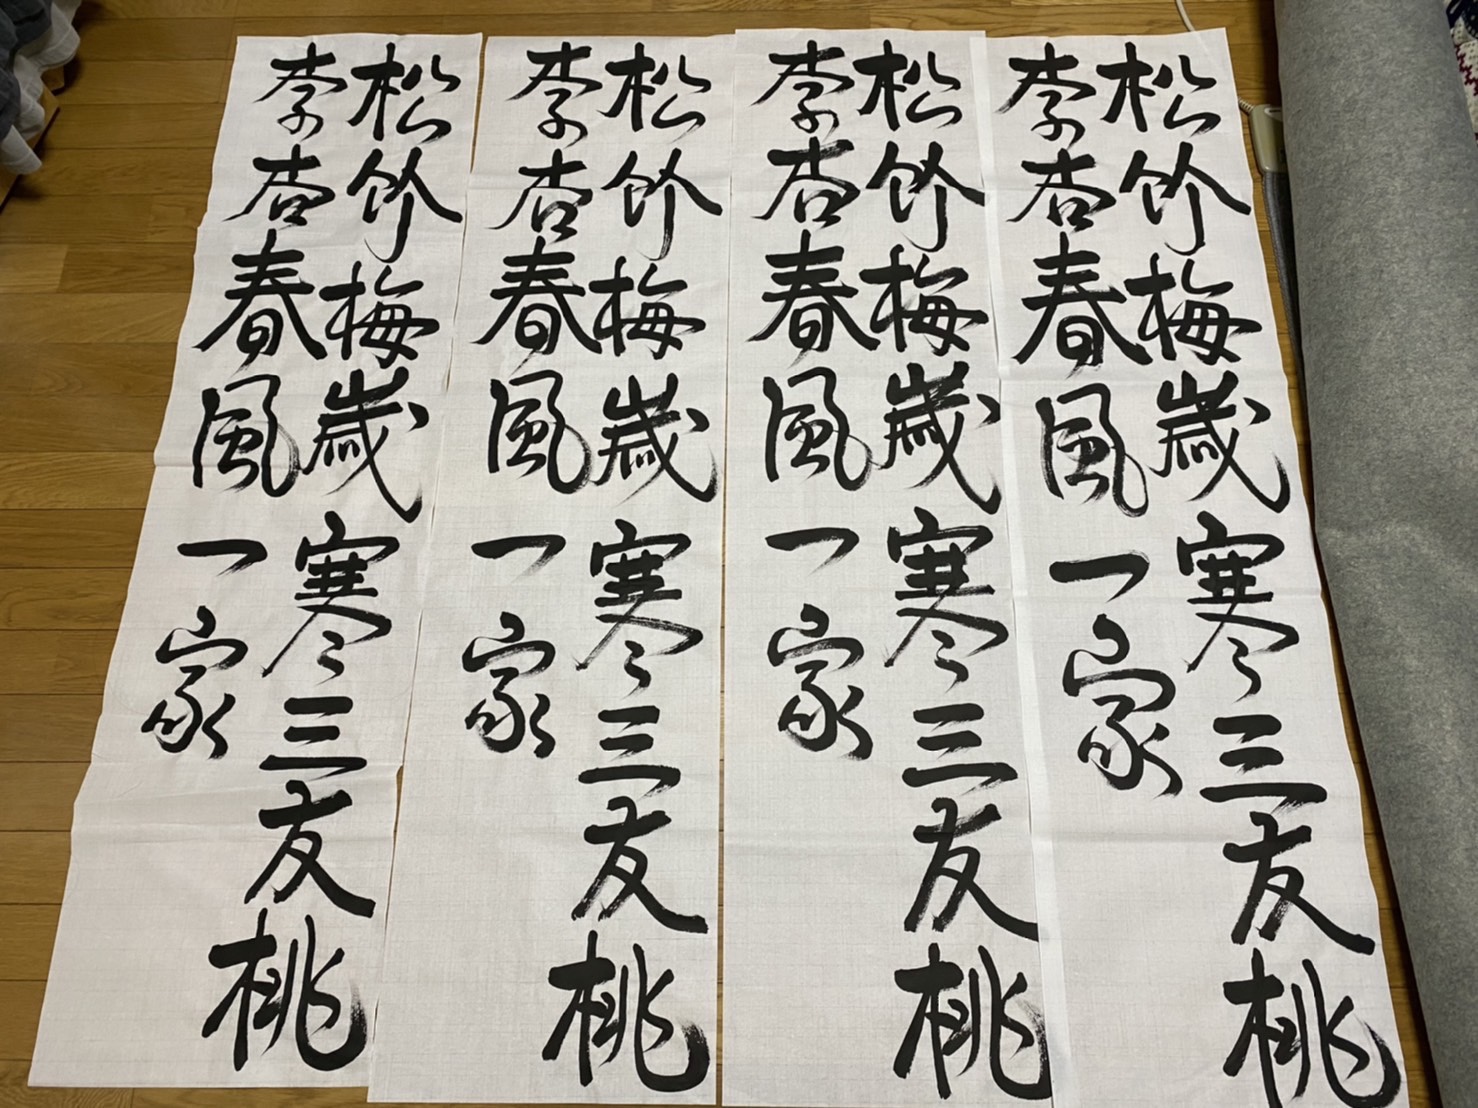 松竹梅歳寒三友桃
李杏春風一家
松竹梅歳寒三友桃
李杏春風一家
松竹梅歳寒三友桃
李杏春風一家
松竹梅歳寒三友桃
李杏春風一家